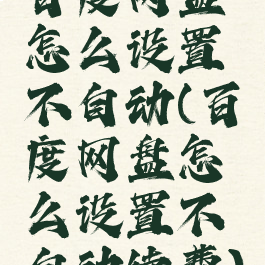 百度网盘
怎么设置
不自动(百
度网盘怎
么设置不
自动续费)